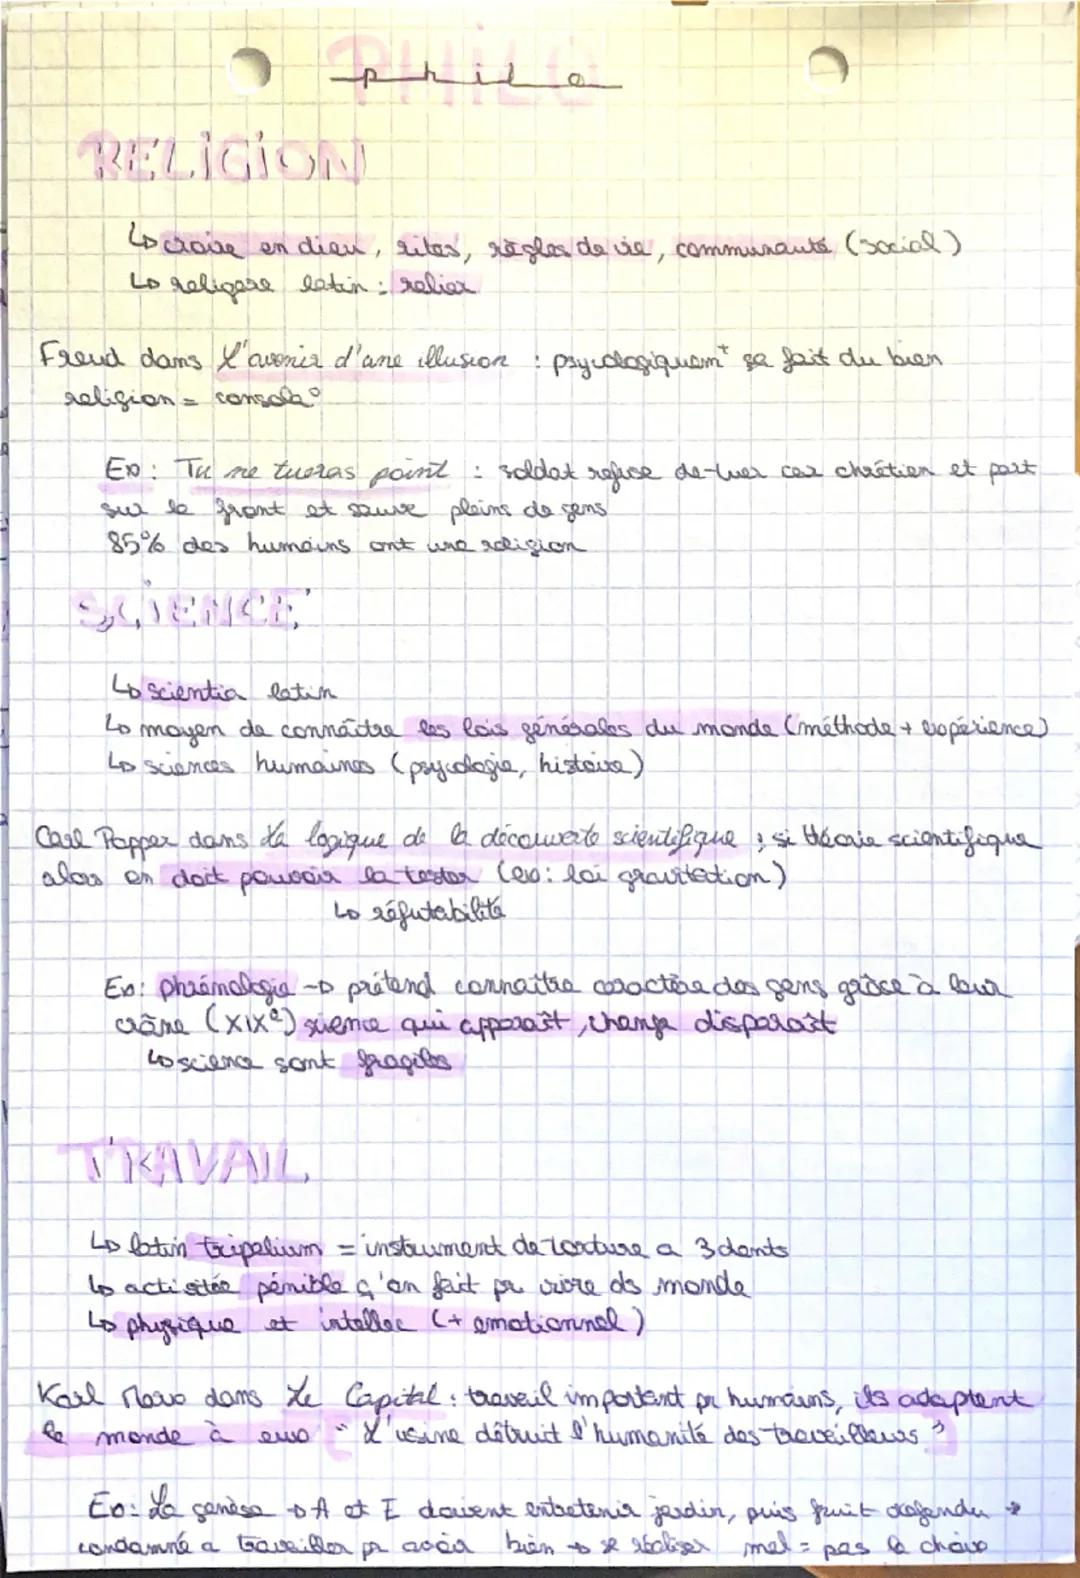 PHILO
philo
RELIGION
↳ croire en dieu, rites, règles de vie, communauté (social)
↳ religere latin : relier
Freud dans L'avenir d'une illusion : psycologiquemt ça fait du bien
religion = conso la°
Ex : Tu ne tueras point : soldat refuse de tuer car chrétien et part
sur le front et sauve pleins de gens
85% des humains ont une religion
SCIENCE
↳ scientia latin
↳ moyen de connaître les lois générales du monde (méthode + expérience)
↳ sciences humaines (psycologie, histoire)
Carl Popper dans La logique de la découverte scientifique ; si théorie scientifique
alors on doit pouvoir la tester (ex : loi gravitation)
↳ réfutabilité
Ex : phrénologie → prétend connaître caractère des gens grâce à leur
crâne (XIXe) science qui apparaît, change disparaît
↳ science sont fragiles
TRAVAIL
↳ latin tripalium = instrument de torture a 3 dents
↳ activitée pénible q'on fait pr vivre ds monde
↳ physique et intellec (+ emotionnel)
Karl Marx dans Le Capital : travail important pr humains, ils adaptent
le monde à eux " L'usine détruit l'humanité des travailleurs "
Ex : La genèse → A et E doivent entretenir jardin, puis fruit defendu →
condamné a travailler pr avoir bien → se réaliser mal = pas le choix